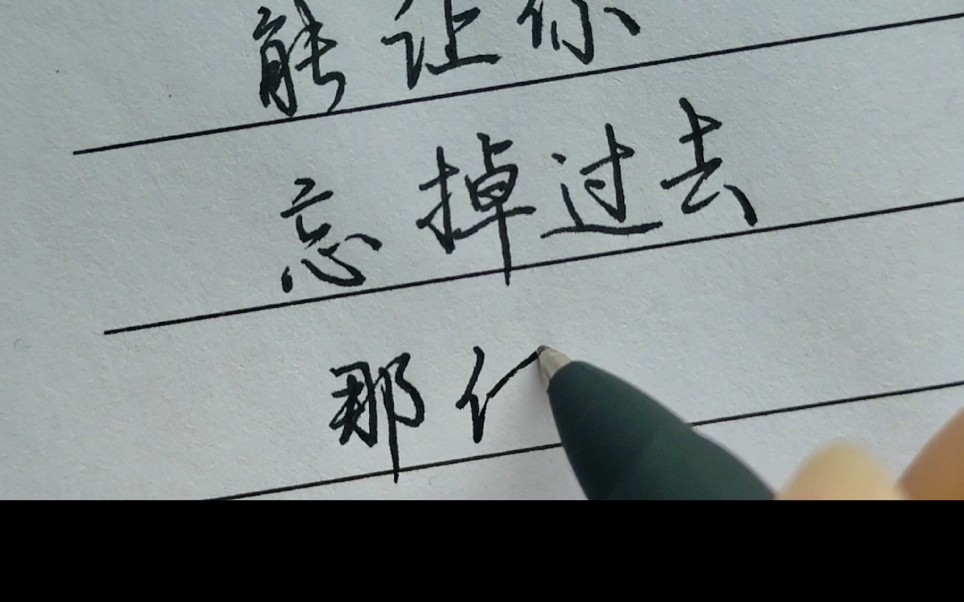 能让你
忘掉过去
那